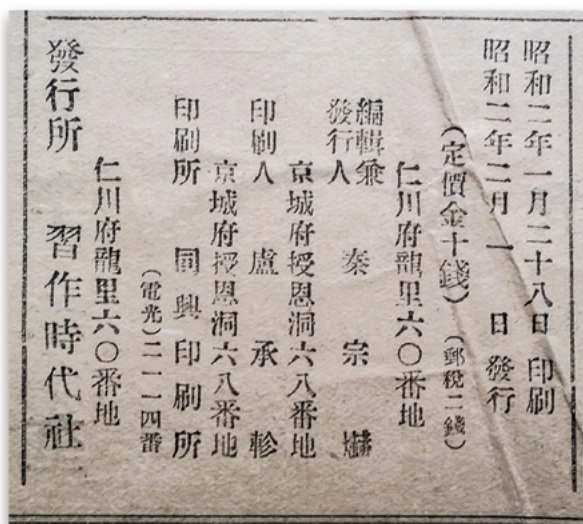 昭和二年一月二十八日 印刷
昭和二年二月一日 發行
(定價金十錢) (郵稅二錢)
仁川府龍里六〇番地
編輯兼
發行人 秦宗
京城府授恩洞六八番地
印刷人 盧承軫
京城府授恩洞六八番地
印刷所 同興印刷所
(電光)二一一四番
仁川府龍里六〇番地
發行所 習作時代社